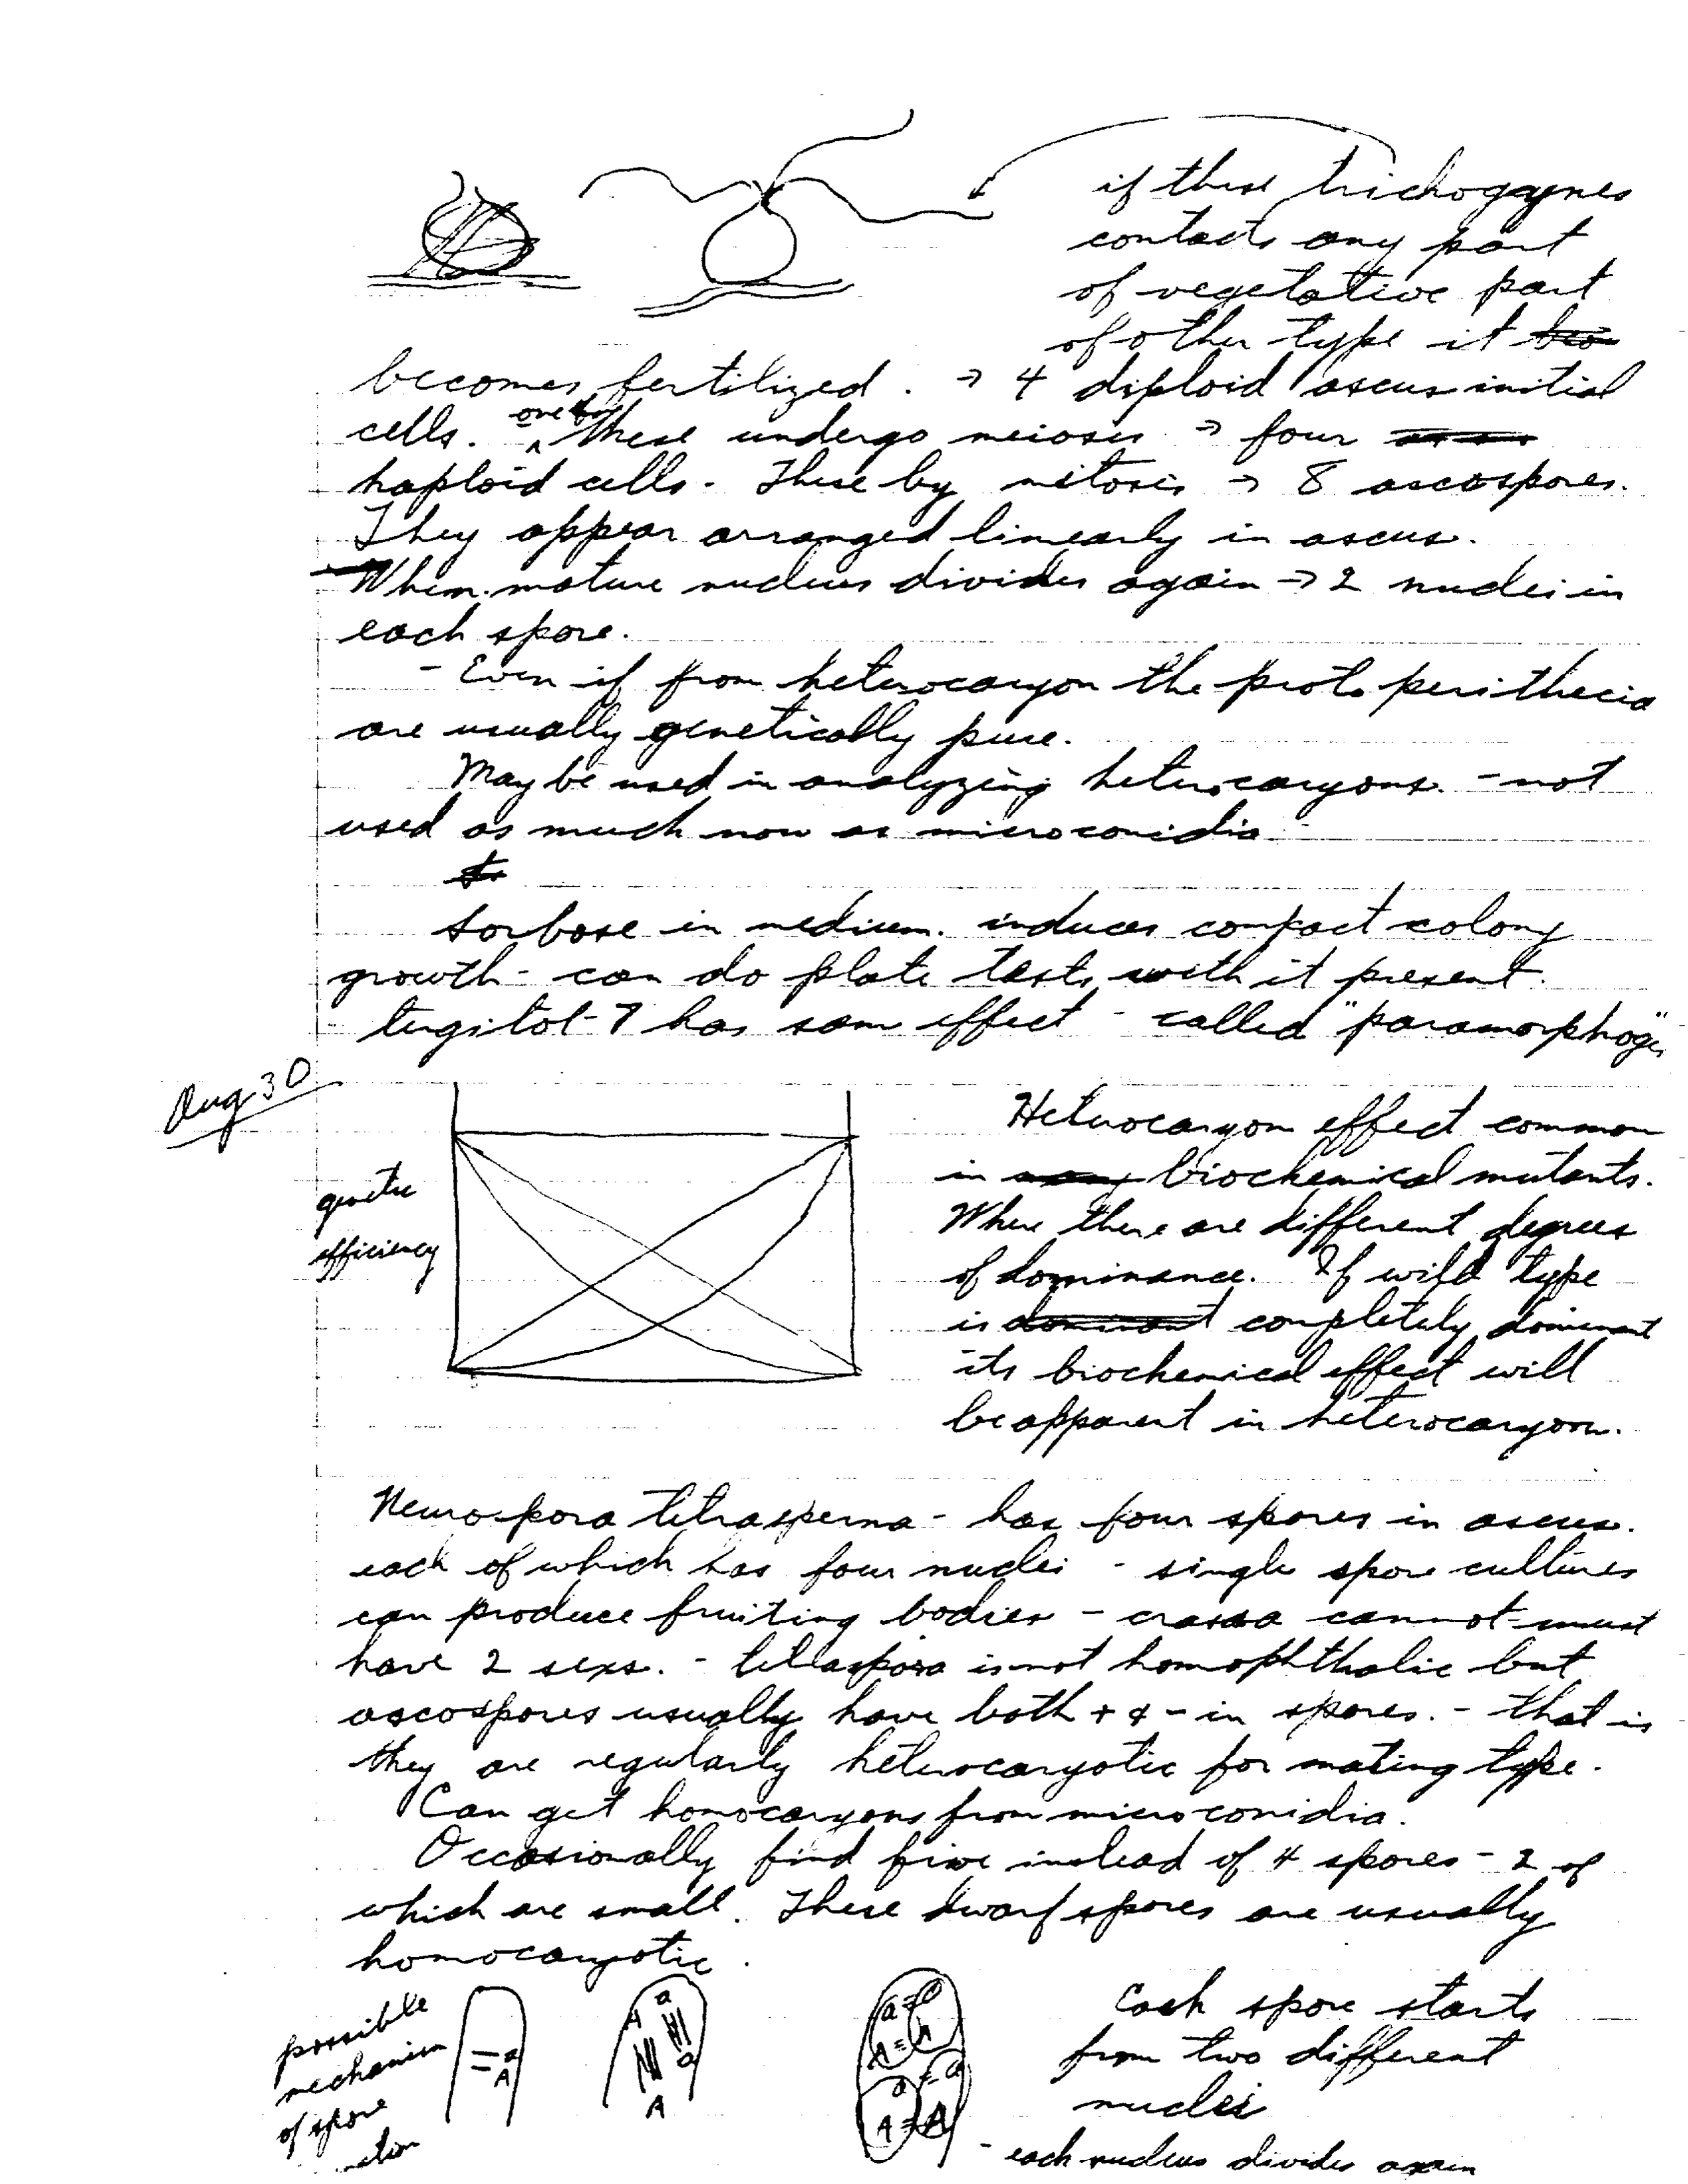 if these trichogynes
contacts any part
of vegetative part
of other type it
becomes fertilized. → 4 diploid ascus initial
cells. one of these undergo meiosis → four
haploid cells. These by mitosis → 8 ascospores.
They appear arranged linearly in ascus.
When mature nucleus divides again → 2 nuclei in
each spore.
- Even if from heterocaryon the proto perithecia
are usually genetically pure.
May be used in analyzing heterocaryons. - not
used as much now as microconidia
Sorbose in medium. induces compact colony
growth - can do plate tests with it present.
tergitol-7 has same effect - called "paramorphogen"
Aug 30
genetic
efficiency
Heterocaryon effect common
in many biochemical mutants.
Where there are different degrees
of dominance. If wild type
is dominant completely dominant
its biochemical effect will
be apparent in heterocaryon.
Neurospora tetrasperma - has four spores in ascus.
each of which has four nuclei - single spore cultures
can produce fruiting bodies - crassa cannot - must
have 2 sexs. - tetraspora is not homophthalic but
ascospores usually have both + & - in spores. - that is
they are regularly heterocaryotic for mating type.
Can get homocaryons from microconidia.
Occasionally find five instead of 4 spores - 2 of
which are small. These dwarf spores are usually
homocaryotic.
possible
mechanism
of spore
= a
A
A a
a
A
a = a
A = A
a = a
A = A
Each spore starts
from two different
nuclei
- each nucleus divides again